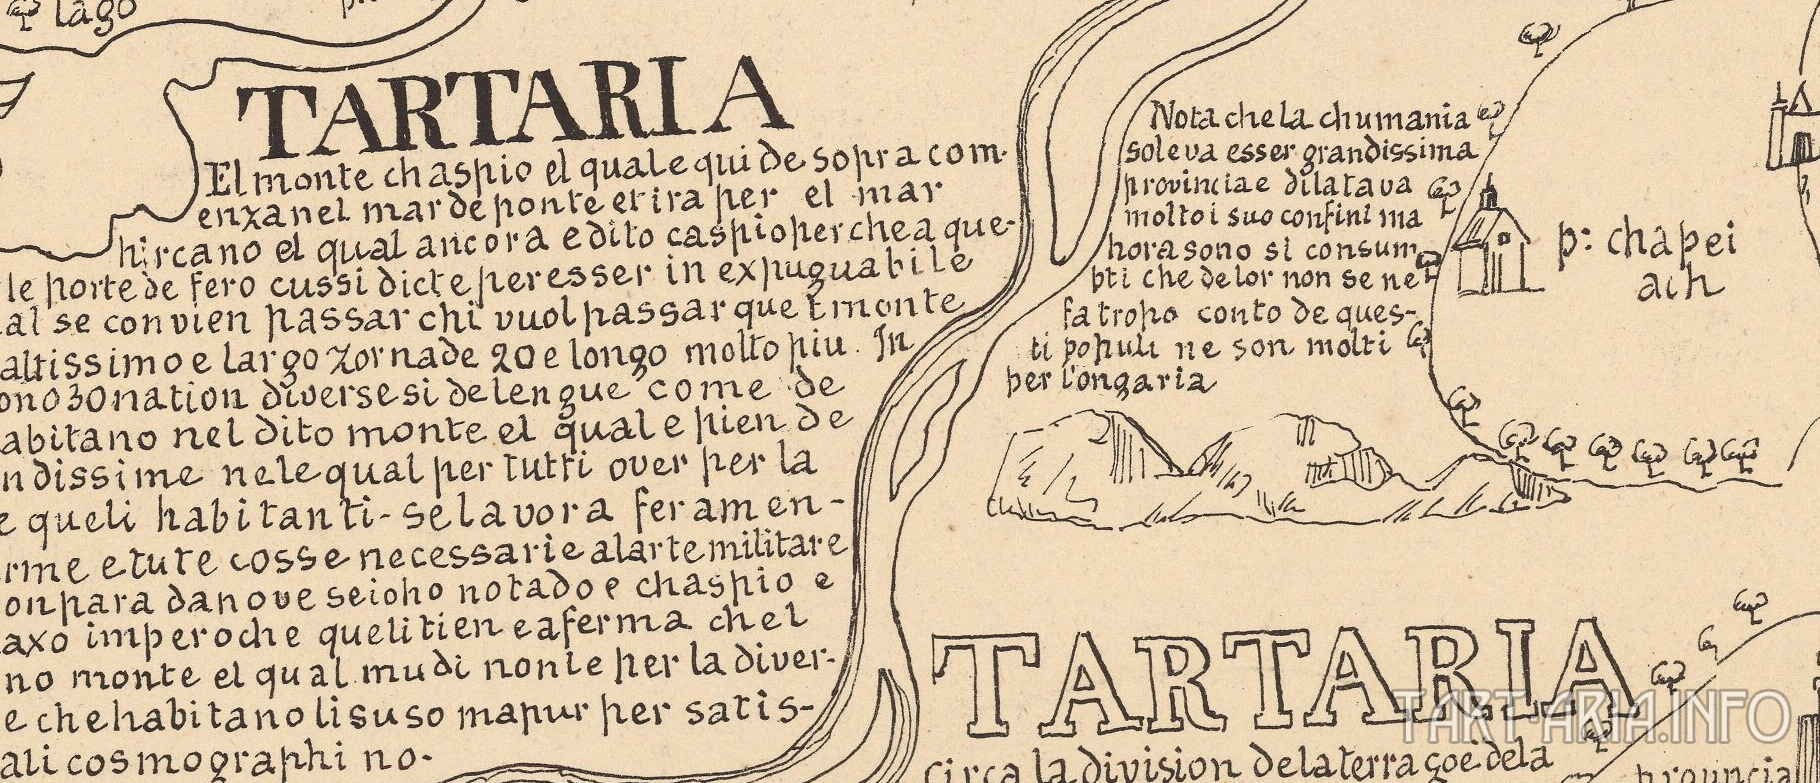 lago
TARTARIA
El monte chaspio el quale qui de sopra com-
enza nel mar de ponte et ira per el mar
hircano el qual ancora e dito caspio perche a que-
le porte de fero cussi dicte per esser in expuguabile
al se convien passar chi vuol passar quel monte
altissimo e largo zornade 20 e longo molto piu. In
ono 30 nation diverse si de lengue come de
abitano nel dito monte el qual e pien de
ndissime ne le qual per tutti over per la
e queli habitanti- se lavora feramen-
rme e tute cosse necessarie al arte militare
on para danove se io ho notado e chaspio e
axo impero che queli tien e aferma chel
no monte el qual mudi nonle per la diver-
e che habitano li suso ma pur per satis-
ali cosmographi no-
Nota che la chumania
soleva esser grandissima
provincia e dilatava
molto i suo confini ma
hora sono si consum
pti che de lor non se ne
fa tropo conto de ques-
ti populi ne son molti
per l'ongaria
p: chapei
ach
TARTARIA
circa la division de la terra çoe dela
provincia
TART-ARIA.INFO